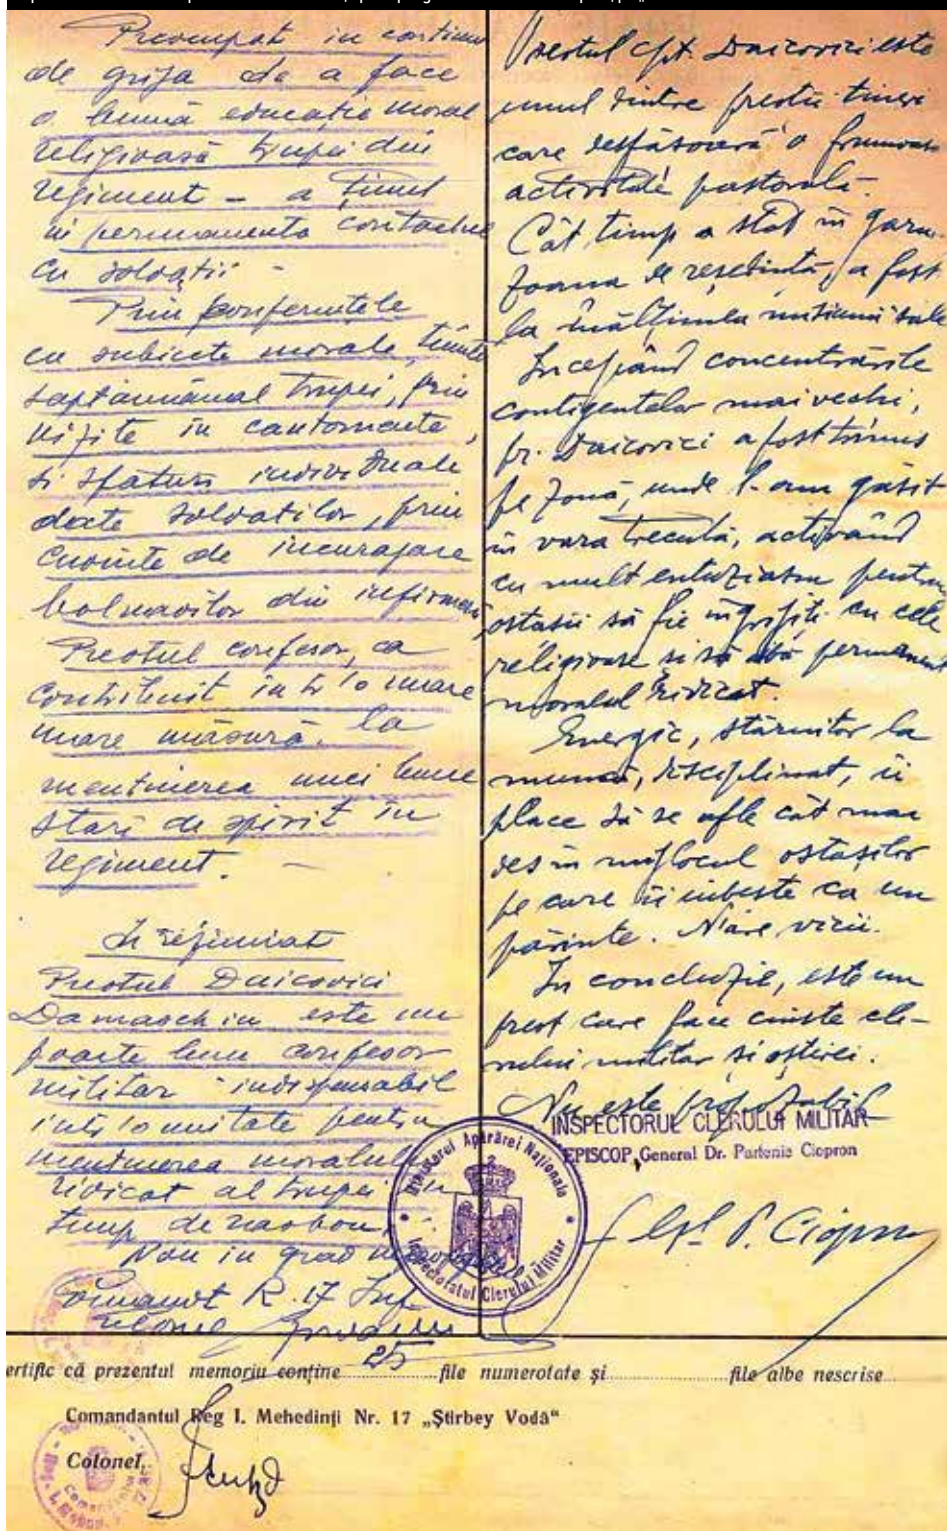 Preocupat in continuu
de grija de a face
o bună educație moral
religioasă trupei din
regiment – a ținut
in permanenta contactul
cu soldații –
Prin conferințele
cu subiecte morale, ținute
saptamânal trupei, prin
vizite in cantonamente,
si sfaturi individuale
date soldatilor, prin
cuvinte de incurajare
bolnavilor din infirmerie
Preotul confesor, ca
contribuit intr'o mare
mare măsură. la
mentinerea unei bune
stari de spirit in
regiment. –
Preotul Daicovici
Damaschin este un
foarte bun confesor
militar indispensabil
intr'o unitate pentru
mentinerea moralului
ridicat al trupei in
timp de rasboiu.
Nou in grad
Comandt R. 17 Inf
Colonel
Preotul Cpt. Daicovici este
unul dintre preotii tineri
care desfăsoară o frumoasă
activitate pastorală.
Cât timp a stat in garni-
zoana de resedintă, a fost
la înălțimea misiunii sale
Incepând concentrările
contigentelor mai vechi,
pr. Daicovici a fost trimis
pe zonă, unde l-am găsit
in vara trecută, activând
cu mult entuziasm pentru
ostasii să fie ingrijiti cu cele
religioase si să aibă permanent
moralul ridicat.
Energic, stăruitor la
muncă, disciplinat, ii
place să se afle cât mai
des in mijlocul ostașilor
pe care ii iubeste ca un
părinte. N'are vicii.
In concluzie, este un
preot care face cinste cle-
rului militar si oștirei.
Nu este propozabil
INSPECTORUL CLERULUI MILITAR
EPISCOP, General Dr. Partenie Ciopron
P. Ciopron
Ministerul Apărărei Naționale
Inspectoratul Clerului Militar
ertific că prezentul memoriu conține 25 file numerotate și file albe nescrise
Comandantul Reg I. Mehedinți Nr. 17 „Știrbey Vodă"
Colonel,